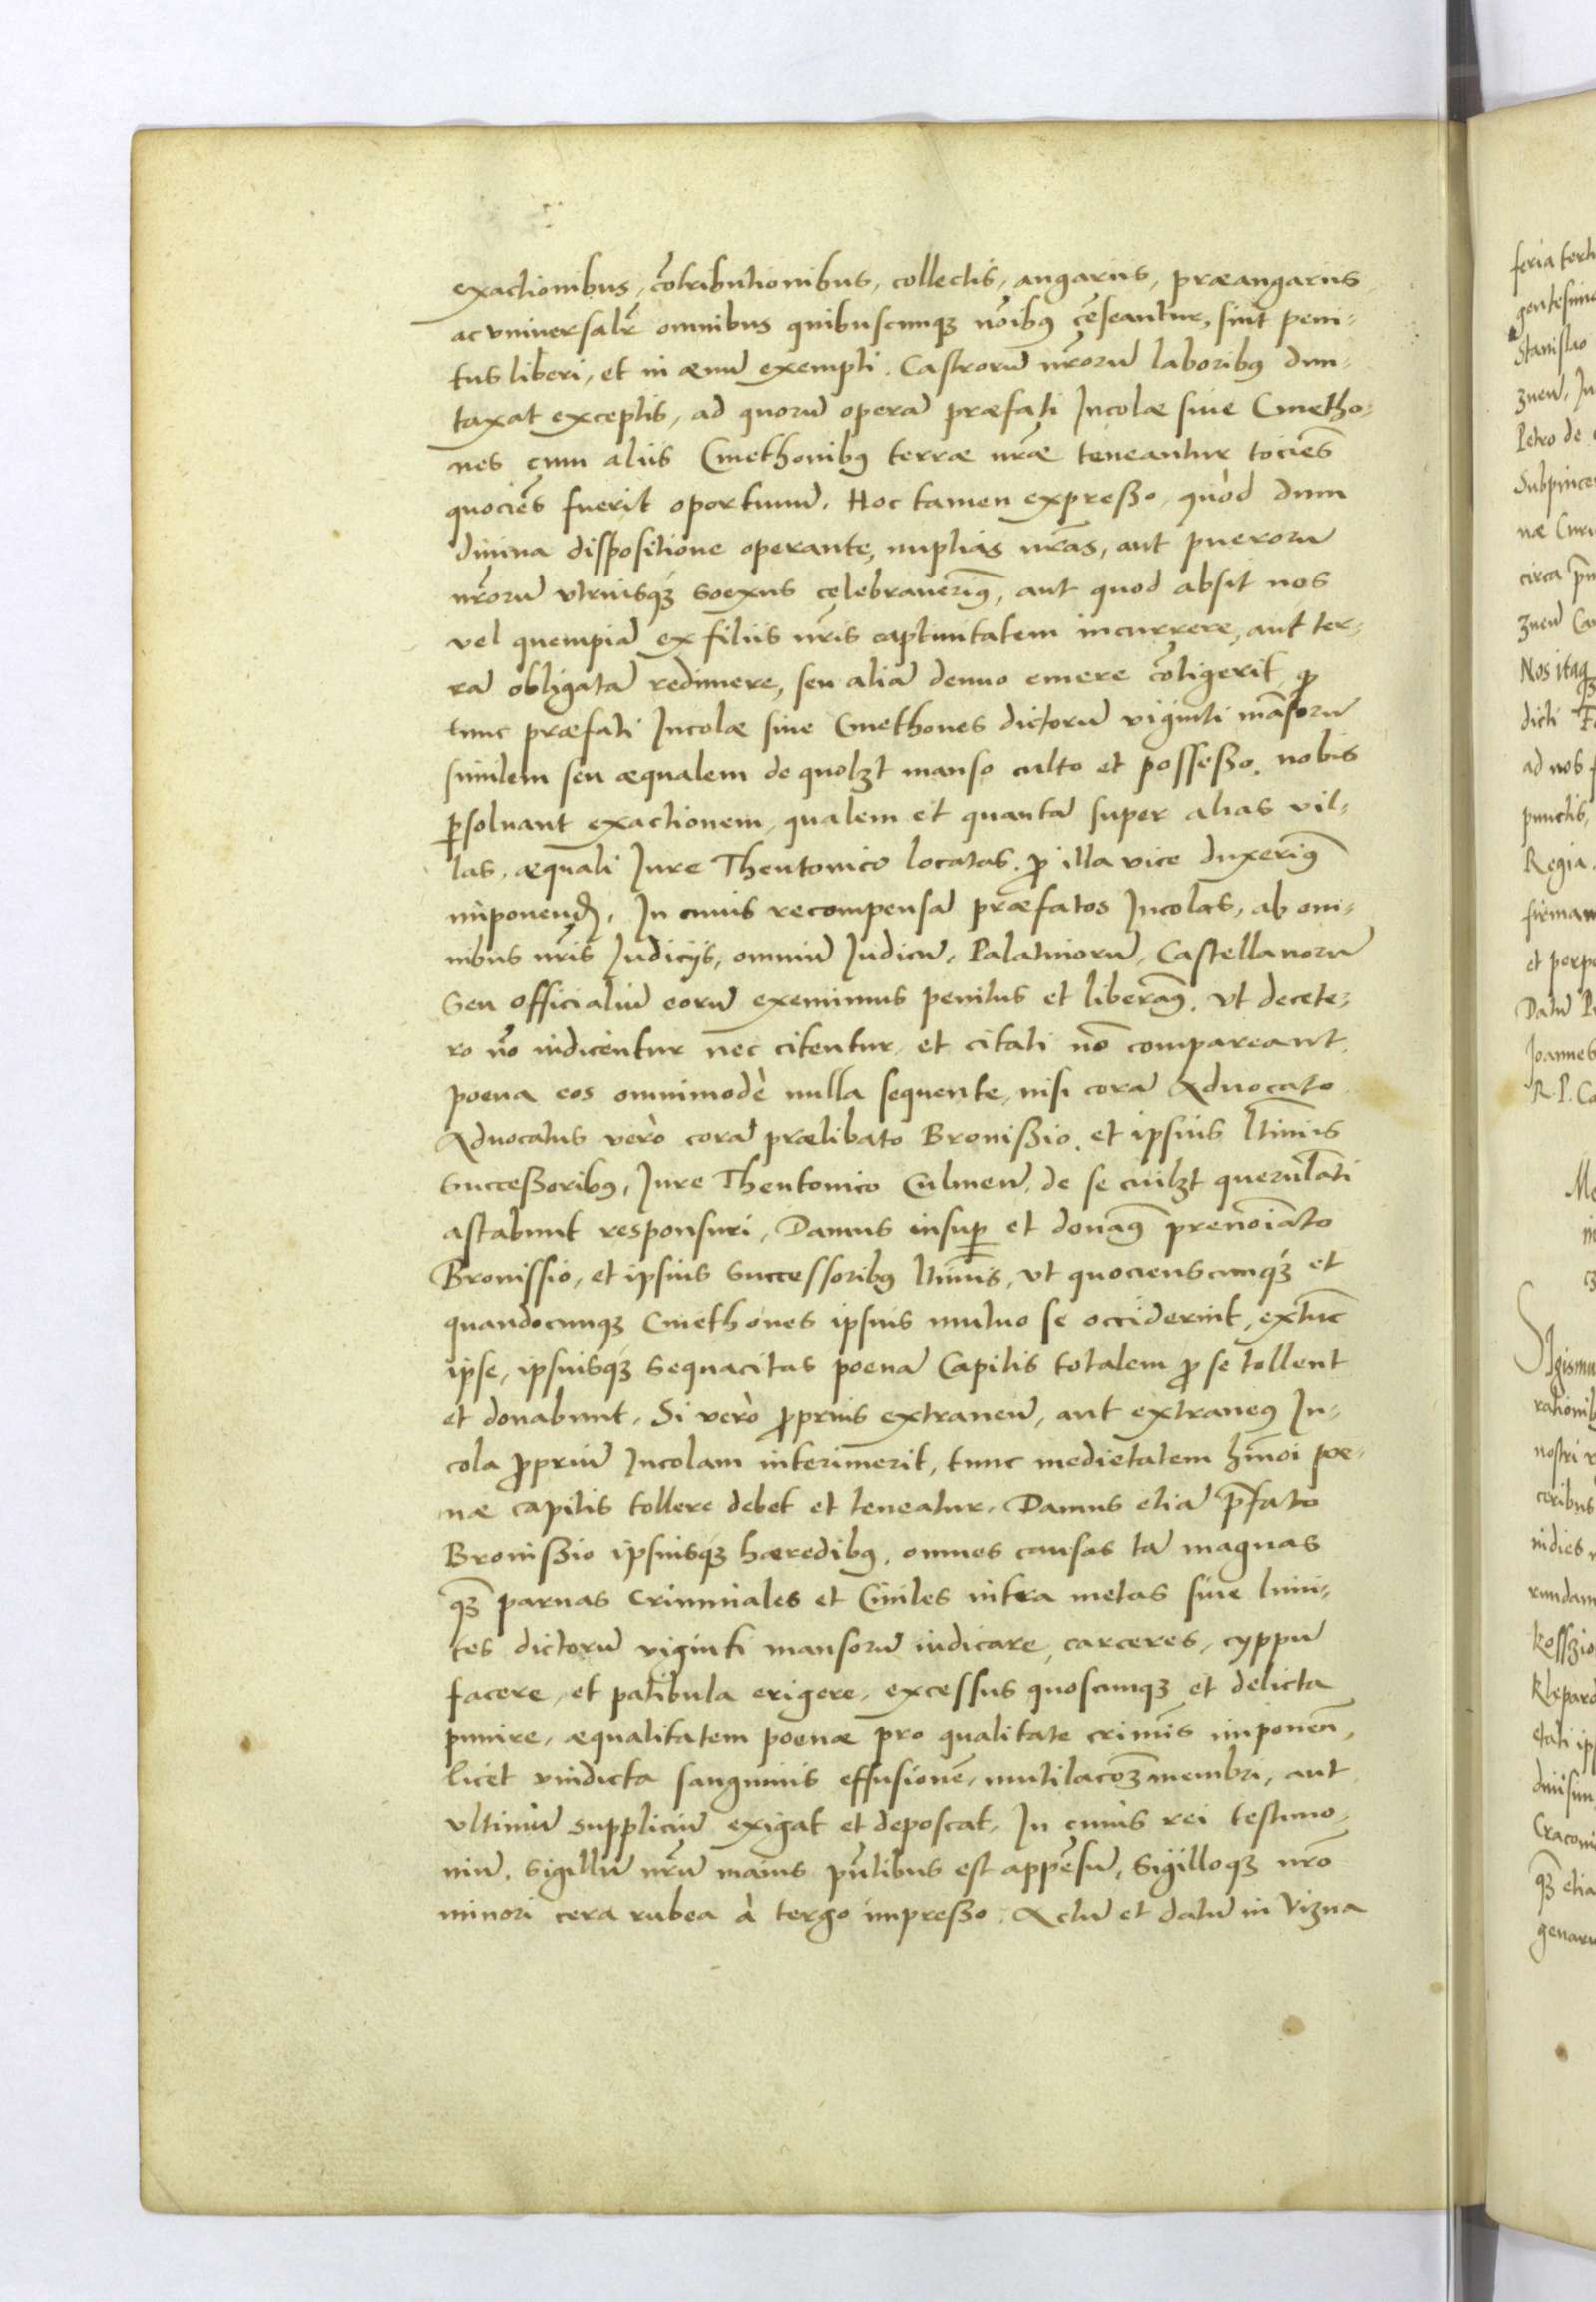 exactionibus, cõtributionibus, collectis, angariis, præangariis
ac vniversalr̃ omnibus quibuscumqꝫ nõibꝫ cẽseantur, sint peni-
tus liberi, et in æuũ exempti. Castrorũ nr̃orũ laboribꝫ dun-
taxat exceptis, ad quorũ operã præfati Incolæ siue Cmetho-
nes cum aliis Cmethonibꝫ terræ nr̃æ teneantur tociẽs
quociẽs fuerit oportunũ. Hoc tamen expreßo, quòd dum
diuina dispositione operante, nuptias nr̃as, aut puerorũ
nr̃orũ vtriusqꝫ soexus celebrauerimꝰ, aut quod absit nos
vel quempiã ex filiis nr̃is captiuitatem incurrere, aut ter-
rã obligatã redimere, seu aliã denuo emere cõtigerit, ꝓ
tunc præfati Incolæ siue Cmethones dictorũ viginti mãsorũ
similem seu æqualem de quolꝫt manso culto et possesso, nobis
ꝑsoluant exactionem, qualem et quantã super alias vil-
las, æquali Iure Theutonico locatas, ꝓ illa vice duxerimꝰ
imponendã. In cuius recompensã præfatos Incolas, ab om-
nibus nr̃is Iudicijs, omniũ Iudicũ, Palatinorũ, Castellanorũ
Seu officialiũ eorũ exemimus penitus et liberamꝰ. Vt decete-
ro nõ iudicentur nec citentur, et citati nõ compareant,
poena eos omnimodè nulla sequente, nisi corã Aduocato
Aduocatus verò corã prælibato Bronißio, et ipsius ltĩmis
Succeßoribꝫ, Iure Theutonico Culmeñ, de se cuilꝫt querulãti
astabunt responsuri. Damus insuꝑ et donamꝰ prenoĩato
Bronissio, et ipsius Successoribꝫ ltĩmis, vt quocienscumqꝫ et
quandocumqꝫ Cmethones ipsius mutuo se occiderint, extũc
ipse, ipsiusqꝫ sequacitas poenã Capitis totalem ꝓ se tollent
et donabunt. Si verò ꝓprius extraneũ, aut extraneꝰ In-
cola ꝓpriũ Incolam interimerit, tunc medietatem hm̃oi poe-
næ capitis tollere debet et teneatur. Damus etiã p̃fato
Bronißio ipsiusqꝫ hæredibꝫ, omnes causas tã magnas
qꝫ̃ paruas Criminales et Ciuiles intra metas siue limi-
tes dictorũ viginti mansorũ iudicare, carceres, cyppũ
facere, et patibula erigere, excessus quoscumqꝫ et delicta
punire, æqualitatem poenæ pro qualitate crimĩs imponeñ,
licet vindicta sanguinis effusionẽ, mutilacõꝫ membri, aut
vltimũ suppliciũ exigat et deposcat. In cuius rei testimo-
niũ, sigillũ nr̃um maius pñtibus est appẽsũ, Sigilloqꝫ nr̃o
minori cera rubea à tergo impreßo. Actũ et datũ in Vizna
feria
Stanislao
Petro de
Nos itaqꝫ
dicti
ad nob
punctis,
Regia.
et perp
R. P.
nostri